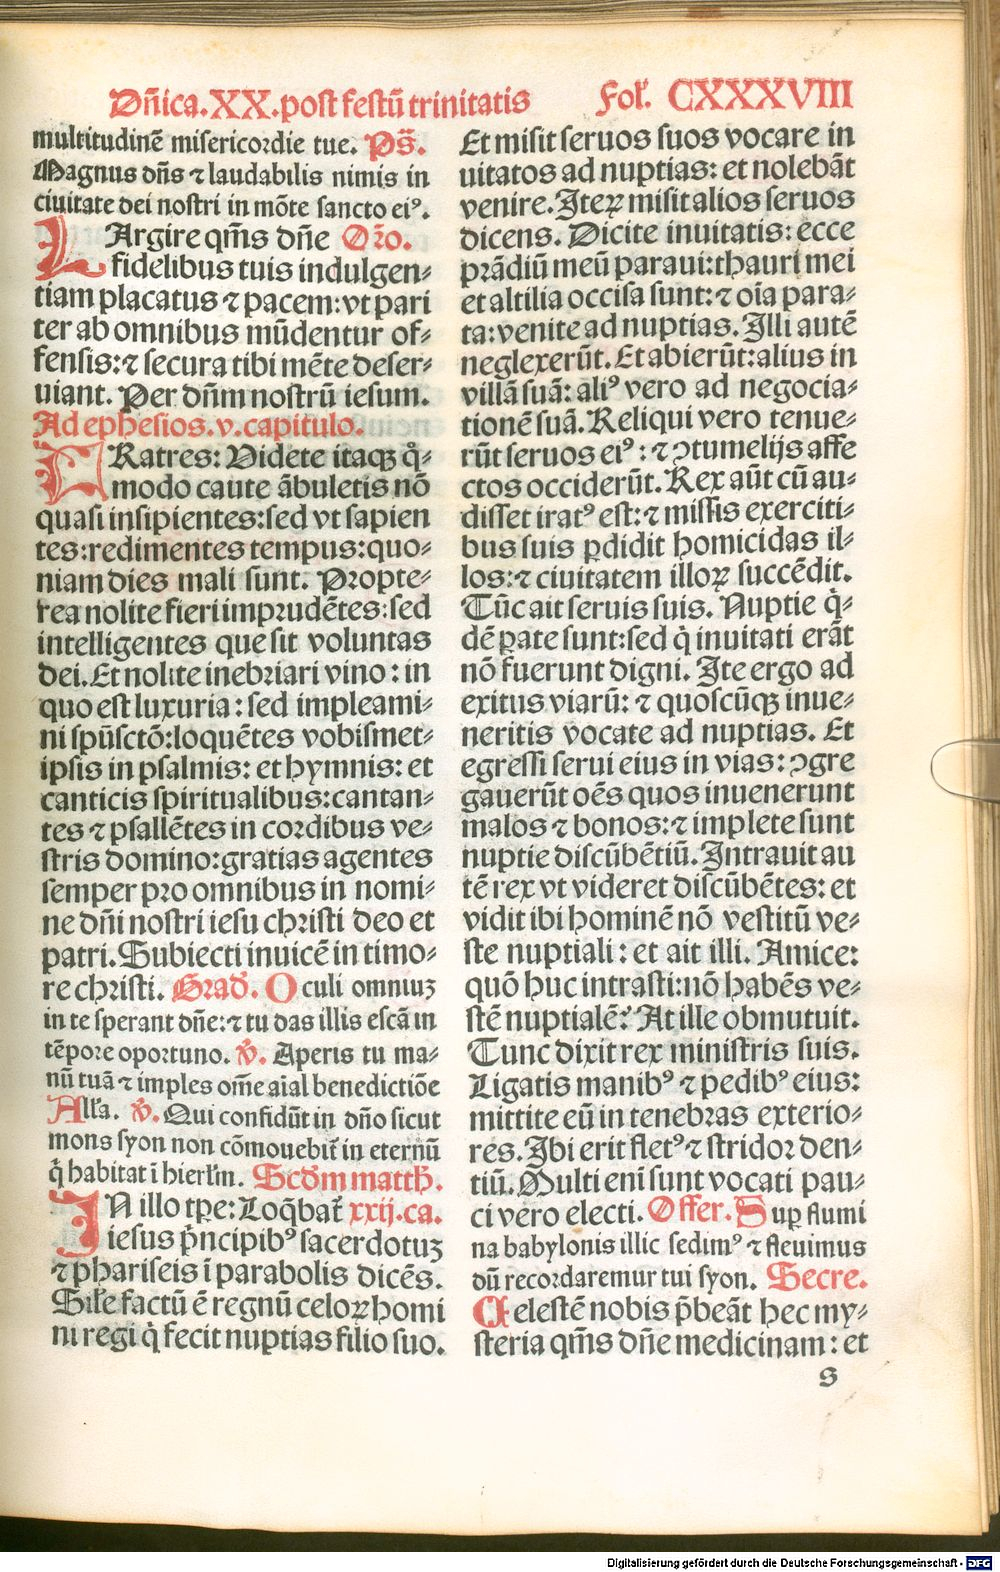 Dñica.XX.post festũ trinitatis
Fol. CXXXVIII
multitudinẽ misericordie tue. Ps̃.
Magnus dñs ⁊ laudabilis nimis in
ciuitate dei nostri in mõte sancto eiꝰ.
LArgire qm̃s dñe Oro.
fidelibus tuis indulgen⸗
tiam placatus ⁊ pacem:vt pari
ter ab omnibus mũdentur of⸗
fensis:⁊ secura tibi mẽte deser⸗
uiant. Per dñm nostrũ iesum.
Ad ephesios.v.capitulo.
FRatres: Videte itaqꝫ q̊⸗
modo caute ãbuletis nõ
quasi insipientes:sed vt sapien
tes:redimentes tempus:quo⸗
niam dies mali sunt. Propte⸗
rea nolite fieri imprudẽtes:sed
intelligentes que sit voluntas
dei. Et nolite inebriari vino: in
quo est luxuria: sed impleami⸗
ni spũsctõ:loquẽtes vobismet⸗
ipsis in psalmis: et hymnis: et
canticis spiritualibus:cantan⸗
tes ⁊ psallẽtes in cordibus ve⸗
stris domino:gratias agentes
semper pro omnibus in nomi⸗
ne dñi nostri iesu christi deo et
patri. Subiecti inuicẽ in timo⸗
re christi. Grad. Oculi omniuꝫ
in te sperant dñe:⁊ tu das illis escã in
tẽpore oportuno. ℣. Aperis tu ma⸗
nũ tuã ⁊ imples om̃e aial benedictiõe
Alla. ℣. Qui confidũt in dño sicut
mons syon non cõmouebit̃ in eternũ
q̃ habitat ĩ hierl̃m. Scd̃m matth.
IN illo tp̃e: Loq̃bat̃ xxij.ca.
iesus p̃ncipibꝰ sacerdotuꝫ
⁊ phariseis ĩ parabolis dicẽs.
Sil̃e factũ ẽ regnũ celoꝝ homi
ni regi q̃ fecit nuptias filio suo.
Et misit seruos suos vocare in
uitatos ad nuptias: et nolebãt
venire. Iteꝝ misit alios seruos
dicens. Dicite inuitatis: ecce
prãdiũ meũ paraui:thauri mei
et altilia occisa sunt: ⁊ oĩa para⸗
ta: venite ad nuptias. Illi autẽ
neglexerũt. Et abierũt:alius in
villã suã: aliꝰ vero ad negocia⸗
tionẽ suã. Reliqui vero tenue⸗
rũt seruos eiꝰ: ⁊ ꝯtumelijs affe
ctos occiderũt. Rex aũt cũ au⸗
disset iratꝰ est: ⁊ missis exerciti⸗
bus suis ꝑdidit homicidas il⸗
los: ⁊ ciuitatem illoꝝ succẽdit.
Tũc ait seruis suis. Nuptie q̃⸗
dẽ ꝑate sunt:sed q̃ inuitati erãt
nõ fuerunt digni. Ite ergo ad
exitus viarũ: ⁊ quoscũqꝫ inue⸗
neritis vocate ad nuptias. Et
egressi serui eius in vias: ꝯgre
gauerũt oẽs quos inuenerunt
malos ⁊ bonos: ⁊ implete sunt
nuptie discũbẽtiũ. Intrauit au
tẽ rex vt videret discũbẽtes: et
vidit ibi hominẽ nõ vestitũ ve⸗
ste nuptiali: et ait illi. Amice:
quõ huc intrasti:nõ habẽs ve⸗
stẽ nuptialẽ? At ille obmutuit.
Tunc dixit rex ministris suis.
Ligatis manibꝰ ⁊ pedibꝰ eius:
mittite eũ in tenebras exterio⸗
res. Ibi erit fletꝰ ⁊ stridor den⸗
tiũ. Multi eni sunt vocati pau⸗
ci vero electi. Offer. Suꝑ flumi
na babylonis illic sedimꝰ ⁊ fleuimus
dũ recordaremur tui syon. Secre.
Celestẽ nobis p̃beãt hec my⸗
steria qm̃s dñe medicinam: et
S
Digitalisierung gefördert durch die Deutsche Forschungsgemeinschaft - DFG